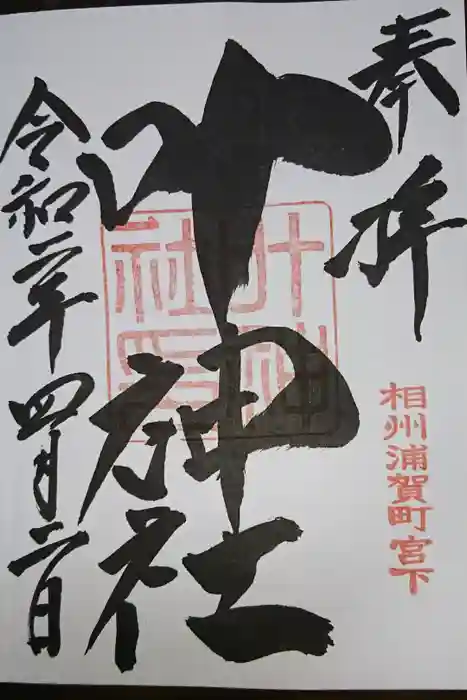 奉拝
相州浦賀町宮下
叶神社
叶神社印
令和二年四月六日